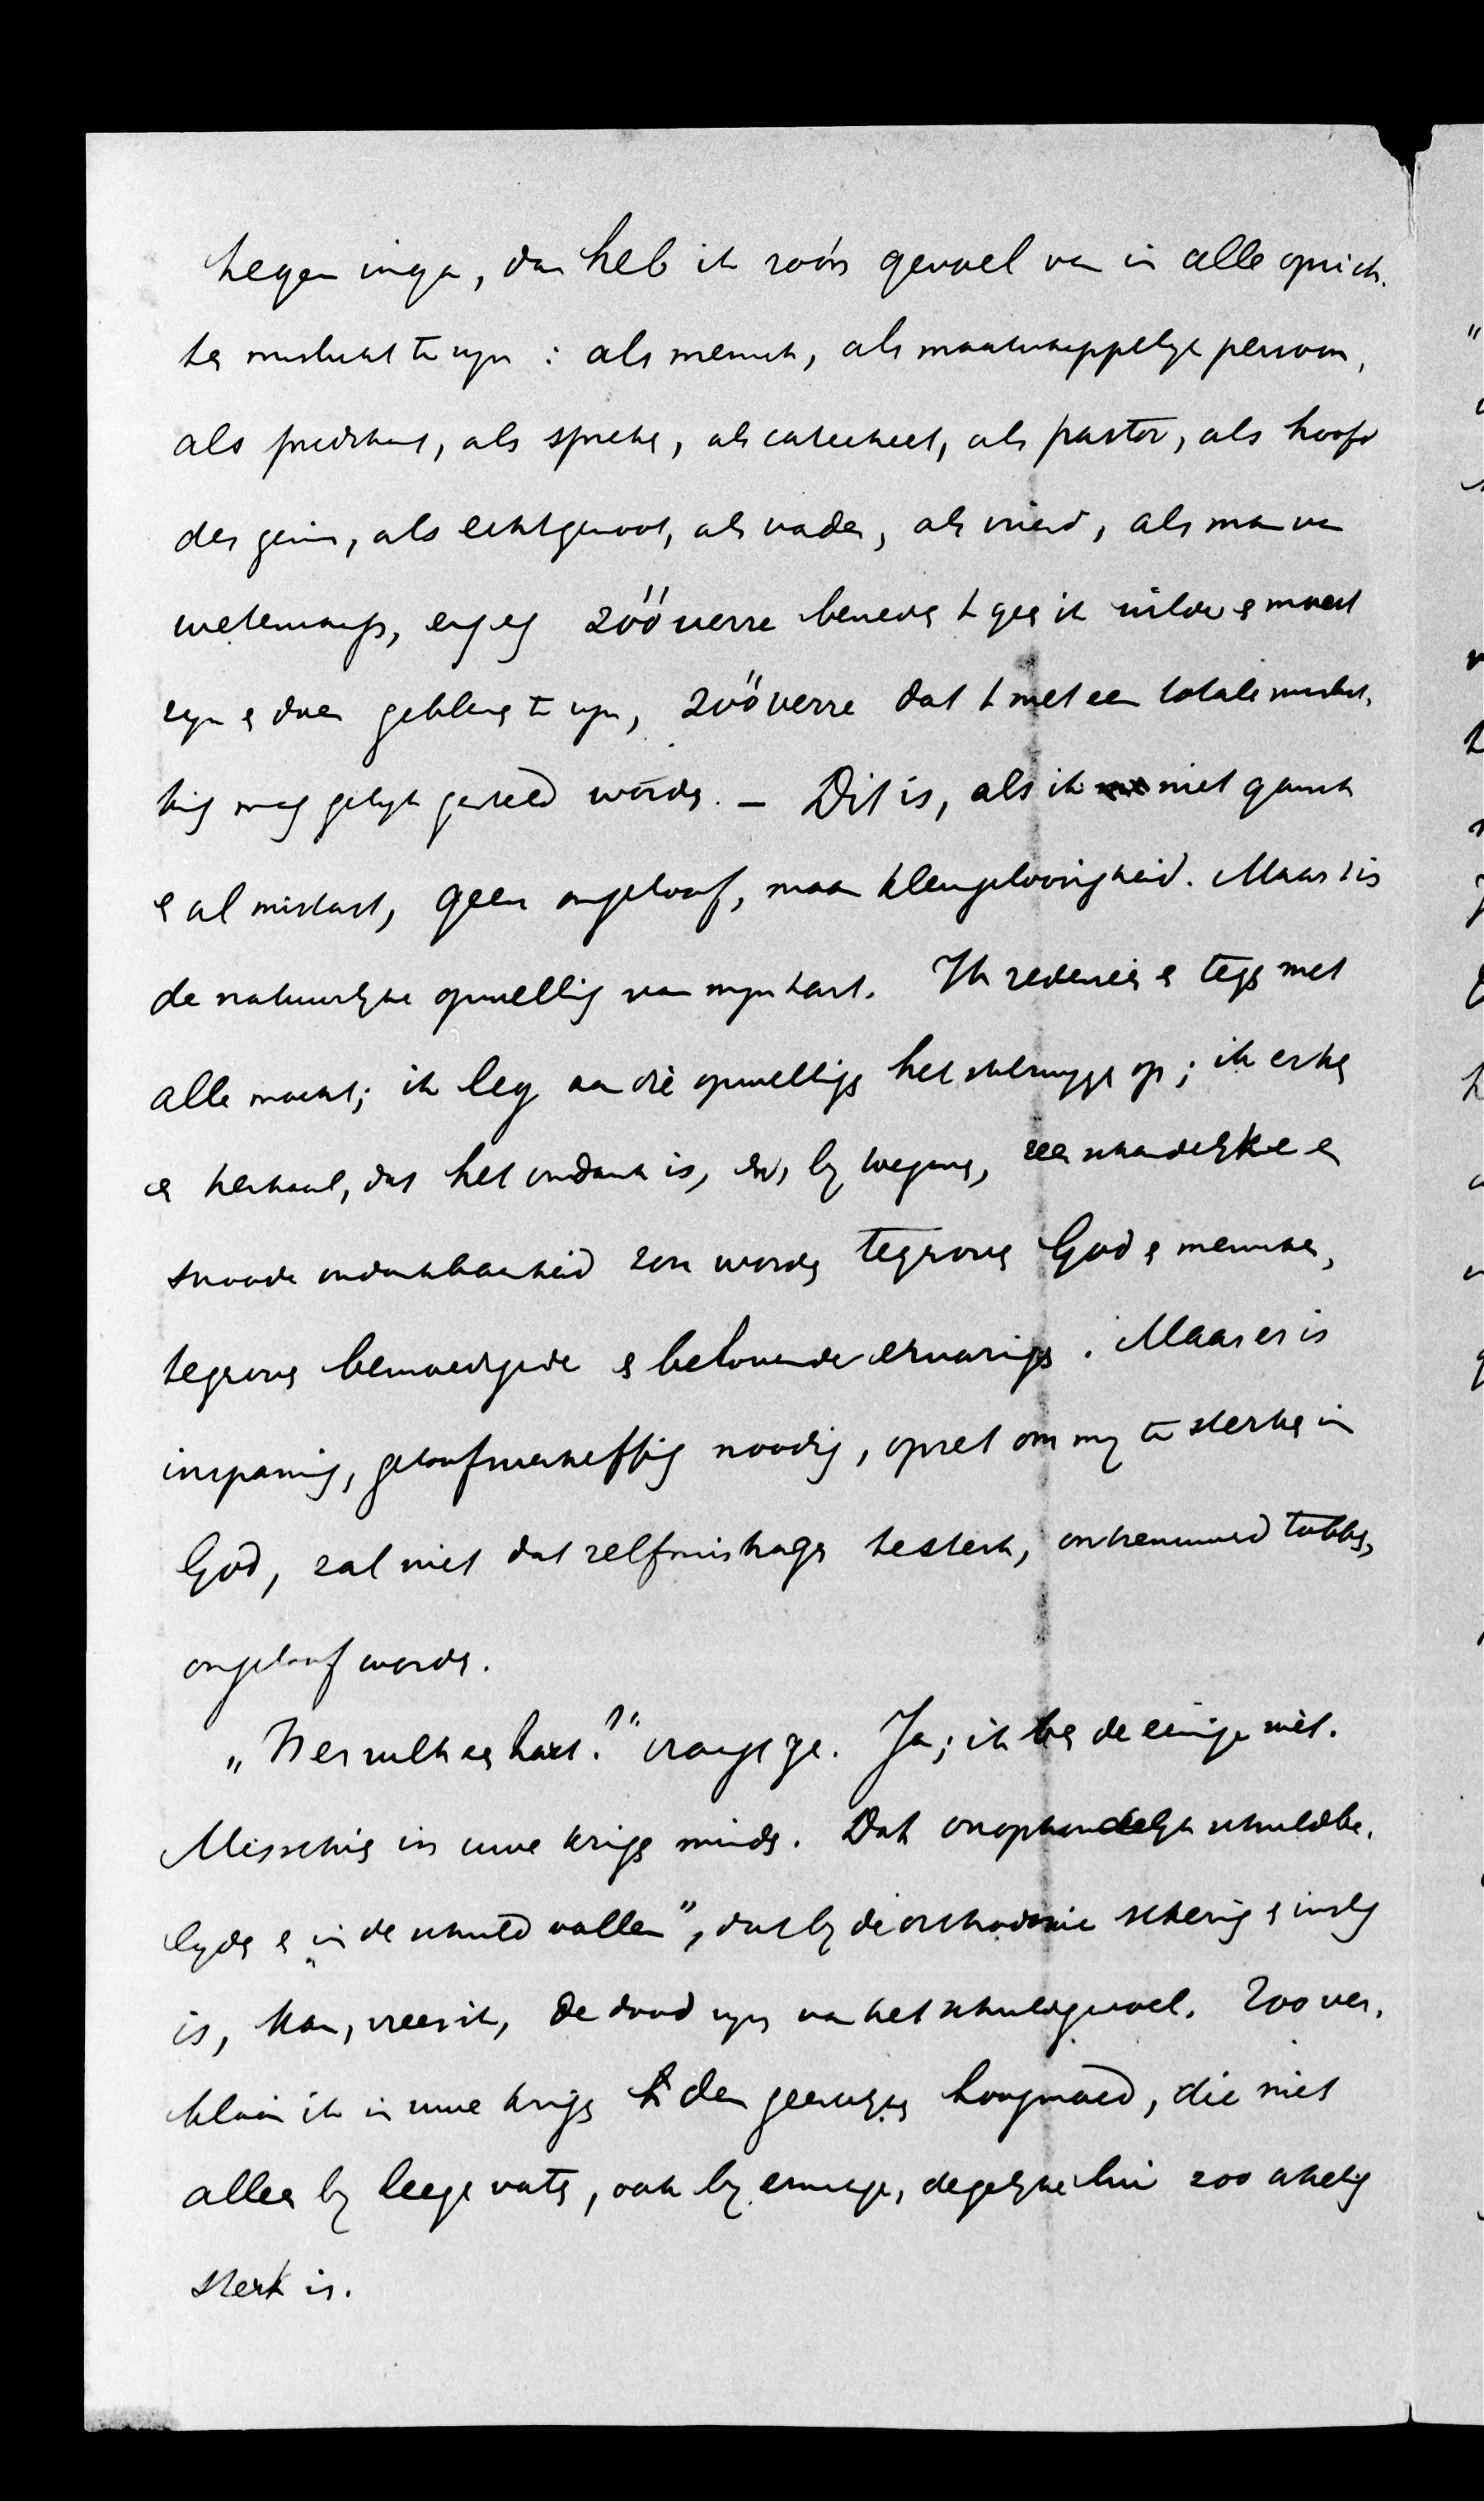 tegen inga, dan heb ik zoo'n gevoel van in alle opzich-
ten mislukt te zyn: als mensch, als maatschappelyk persoon,
als predikant, als spreker, als catecheet, als pastor, als hoofd
des gezins, als echtgenoot, als vader, als vriend, als man van
wetenschap, enz. enz. zóó verre beneden 't geen ik wilde en moest
zyn en doen gebleven te zyn, zóó verre dat 't met een totale misluk-
king mag gelyk gesteld worden. – Dit is, als ik niet gansch
en al mistast, geen ongeloof, maar kleingeloovigheid. Maar 't is
de natuurlyke opwelling van myn hart. Ik redeneer er tegen met
alle macht; ik leg aan die opwellingen het stilzwygen op; ik erken
en herhaal, dat het ondank is, en, by toegeven, zeer schandelyke en
snoode ondankbaarheid zou worden tegenover God en menschen,
tegenover bemoedigende en beloonende ervaringen. Maar er is
inspanning, geloofsverheffing noodig, opzet om my te sterken in
God, zal niet dat zelfmishagen te sterk, ontzenuwend tobben,
ongeloof worden.
„Menschelyk hart?" vraagt ge. Ja; ik ben de eenige niet.
Misschien in uwe kringen minder. Dat onophoudelyk schuldbe-
lyden en „in de schuld vallen", dat by de orthodoxie schering en inslag
is, kan, vrees ik, de dood zyn van het schuldgevoel. Zoo ver-
klaar ik in uwe kringen den geestelyken hoogmoed, die niet
alleen by leege vaten, ook by ernstige, degelyke lui zoo akelig
sterk is.